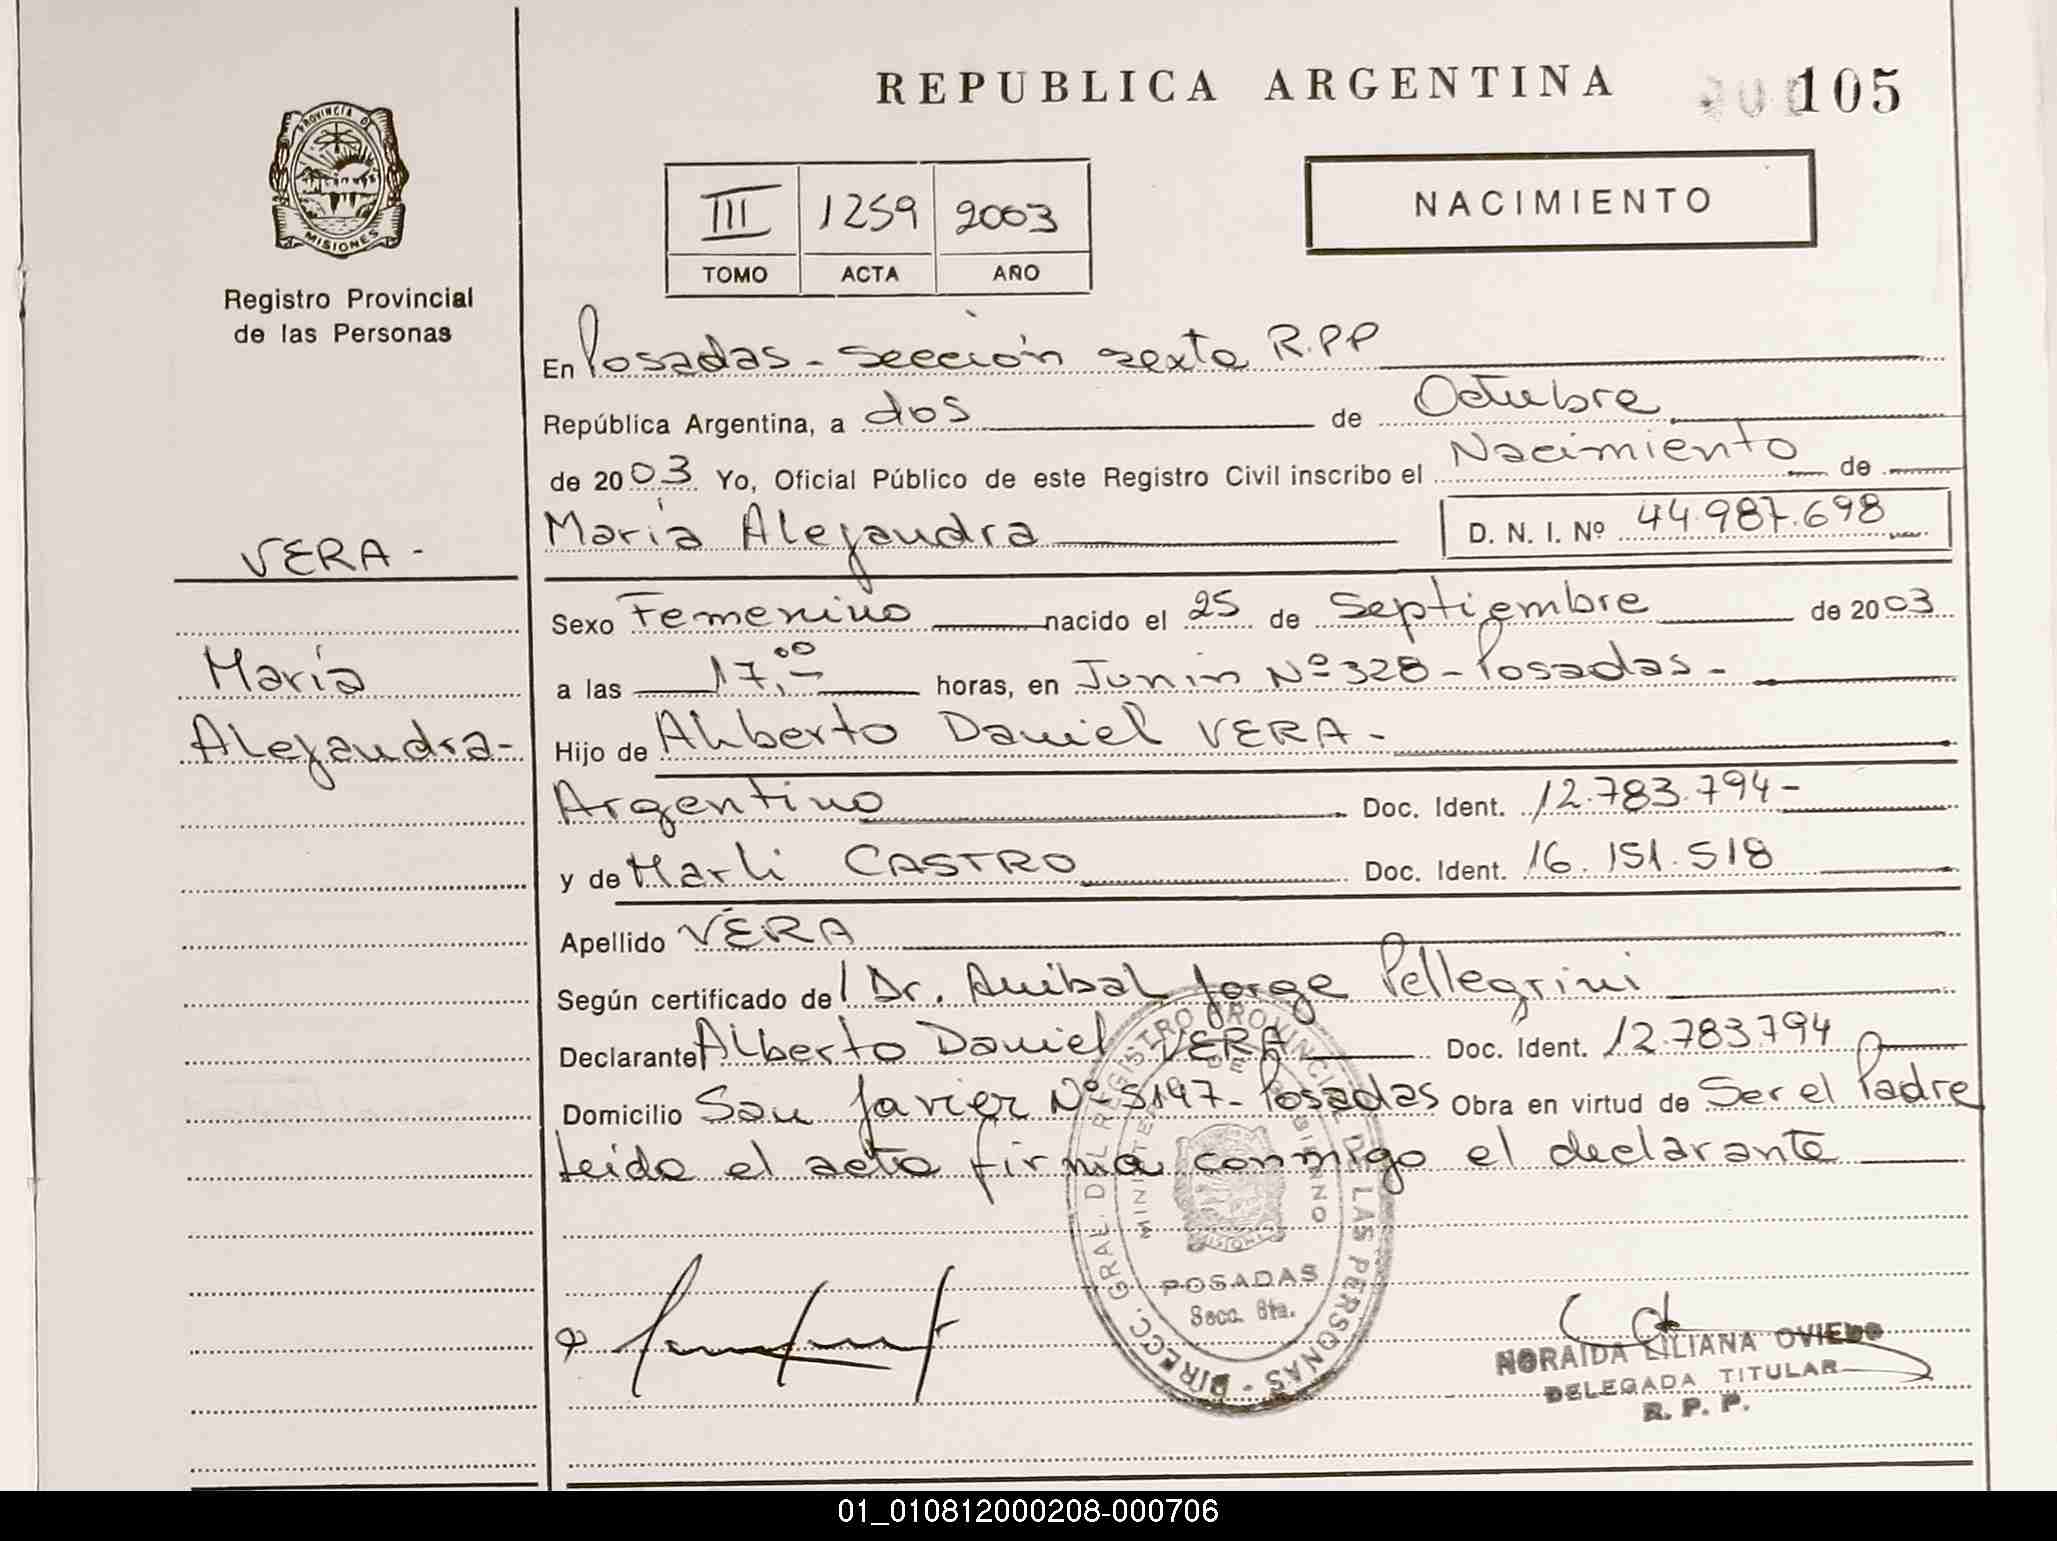 REPUBLICA ARGENTINA
105
PROVINCIA DE
MISIONES
Registro Provincial
de las Personas
III 1259 2003
TOMO ACTA AÑO
NACIMIENTO
En Posadas - Sección sexta R.P.P
República Argentina, a dos de Octubre
de 2003 Yo, Oficial Público de este Registro Civil inscribo el Nacimiento de
María Alejandra D. N. I. Nº 44.987.698
VERA -
María
Alejandra -
Sexo Femenino nacido el 25 de Septiembre de 2003
a las 17,00 horas, en Junín Nº 328 - Posadas -
Hijo de Alberto Daniel VERA -
Argentino Doc. Ident. 12.783.794 -
y de Marli CASTRO Doc. Ident. 16.151.518
Apellido VERA
Según certificado del Dr. Anibal Jorge Pellegrini
Declarante Alberto Daniel VERA Doc. Ident. 12.783794
Domicilio San Javier Nº 5197 - Posadas Obra en virtud de Ser el Padre
Leída el acta firma conmigo el declarante
DIRECC. GRAL. DEL REGISTRO PROVINCIAL DE LAS PERSONAS
MINISTERIO DE GOBIERNO
MISIONES
POSADAS
Secc. 6ta.
NORAIDA LILIANA OVIEDO
DELEGADA TITULAR
R. P. P.
01_010812000208-000706